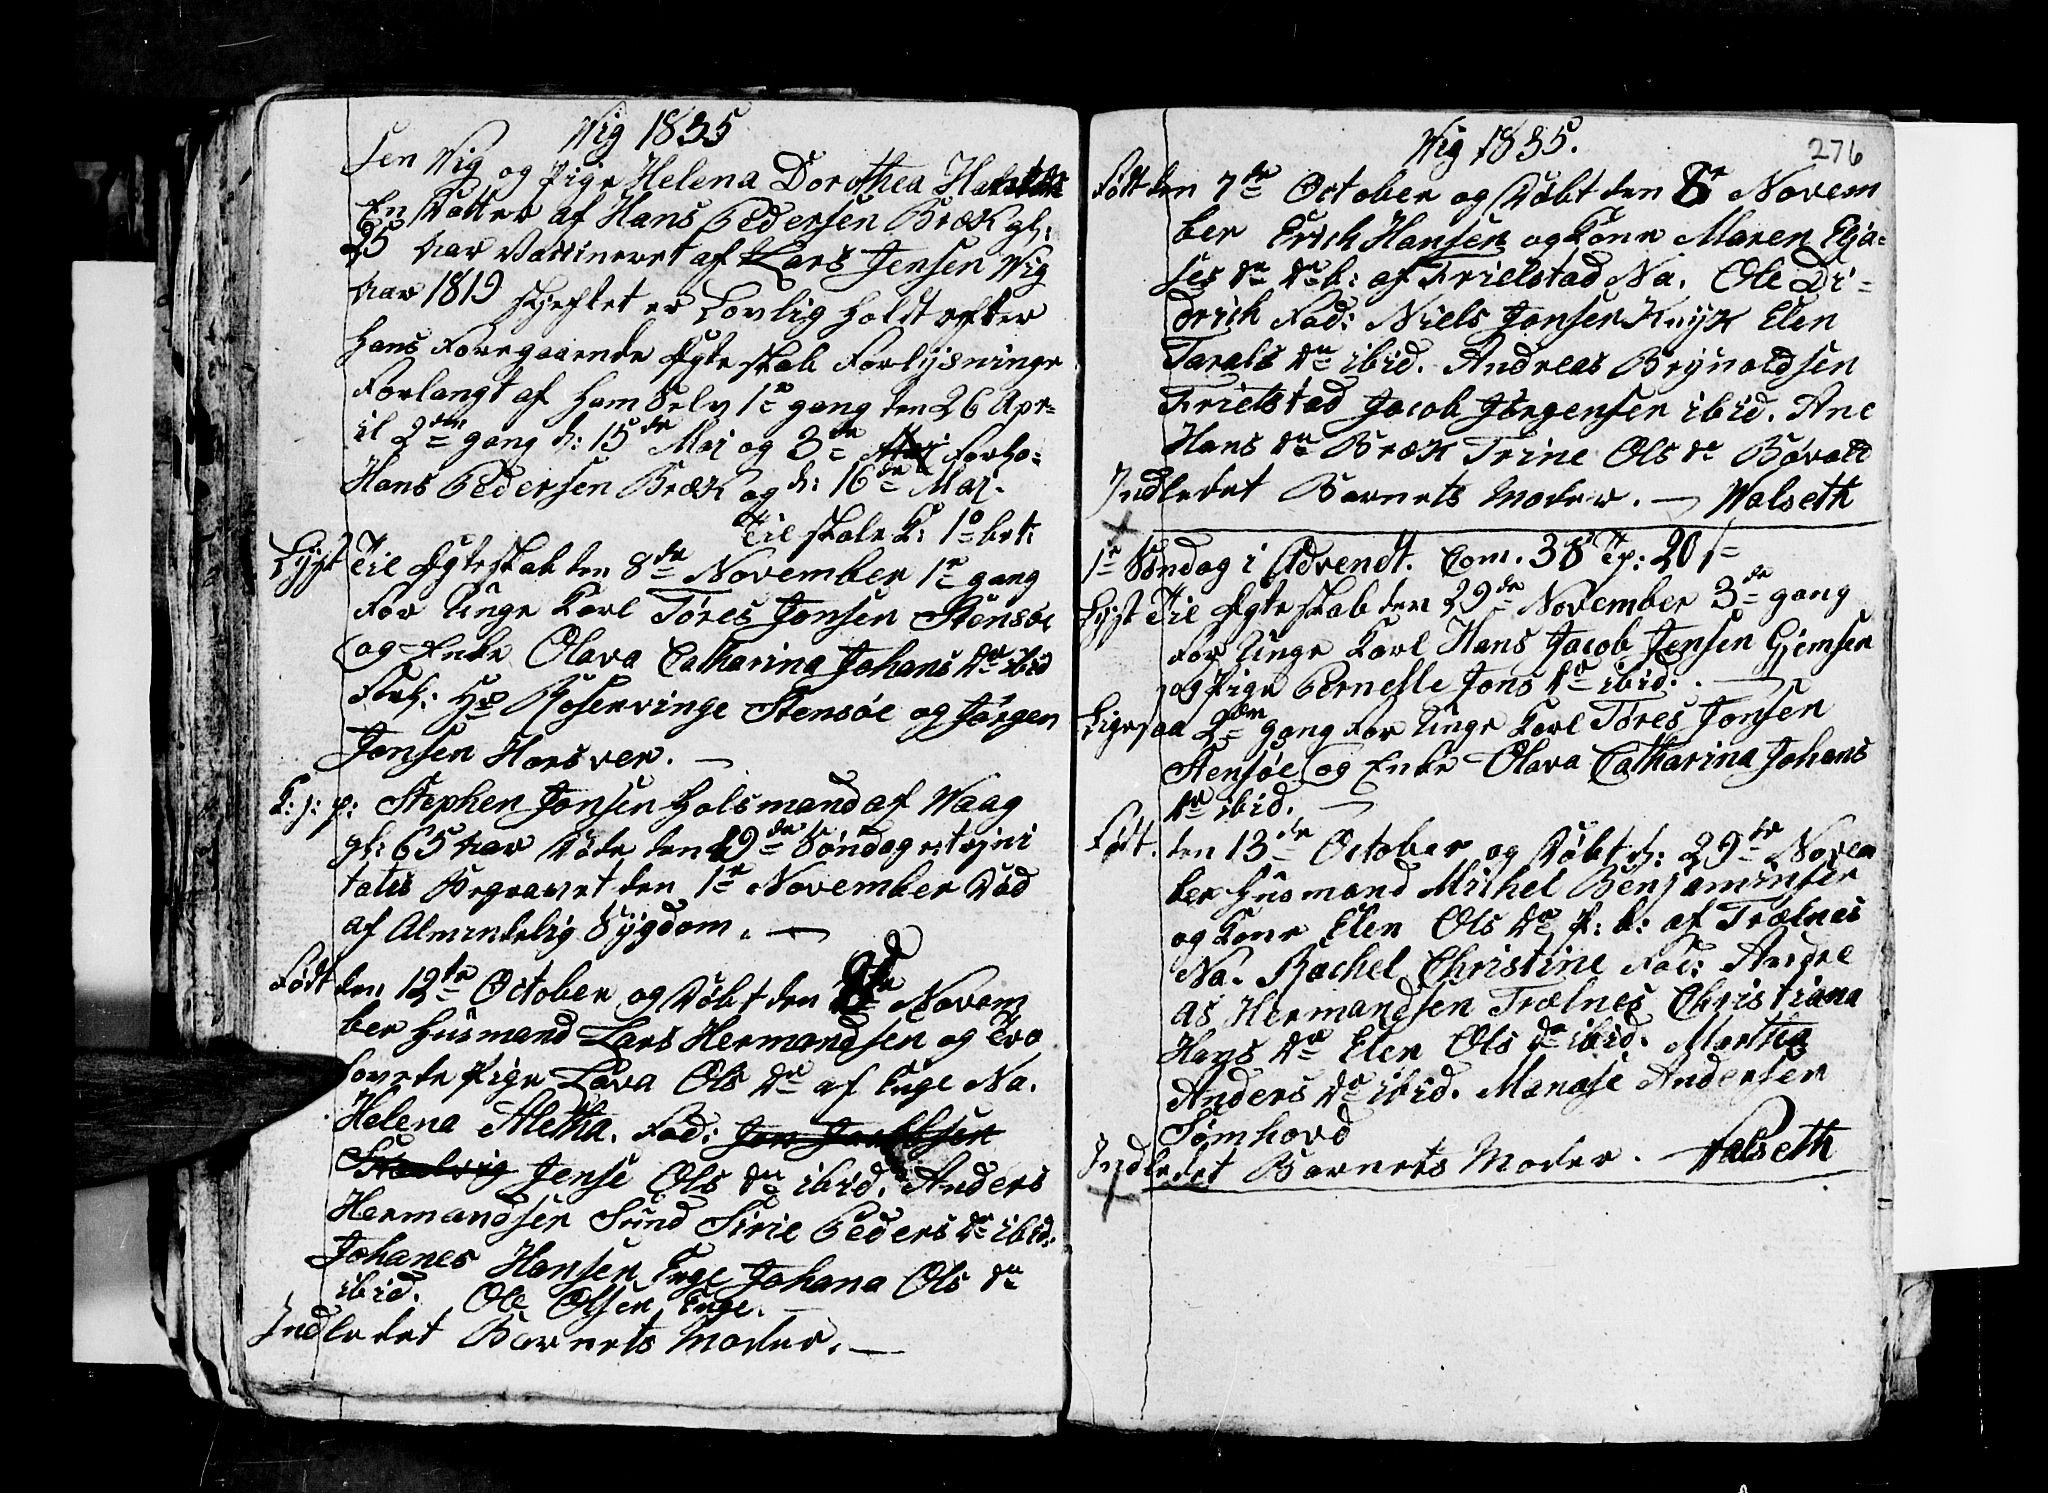 Wig 1835
sen Wig og Pige Helena Dorothea
En Datter af Hans Pedersen Bræk gl:
25 Aar Vaccineret af Lars Jensen Wig
Aar 1819 Skjeftet er Lovlig holdt efter
Hans Foregaaende Ægteskab Forlysninge
Forlangt af Ham Selv 1ste gang den 26 Apr=
il 2den gang d: 15de Maj og 3de Forlo=
Hans Pedersen Bræk og d: 16de Maj.
Til Skole K: 1o bet:
Lyst Til Ægteskab den 8de November 1te gang
For Unge Karl Tøres Jonsen Stensøe
og Enke Olava Catharina Johans dtr ibid
Forl: Hr Rosenvinge Stensøe og Jørgen
Jonsen Horsver. —
K: j: p: Stephen Jonsen Holsmand af Waag
gl: 65 Aar Døde den 19de Søndag e: trini
tatis Begravet den 1te November Død
af Almindelig Sygdom. —
Født den 12te October og Døbt den 8de Novem
ber Husmand Lars Hermandsen og Tro
lovede Pige Lava Ols dtr af Enge Na.
Helena Aletha. Fad: Jon Jacobsen
Skaalvig Jense Ols dtr ibid. Anders
Hermandsen Sund Sirie Peders dtr ibid:
Johanes Hansen Enge Johana Ols dtr
ibid. Ole Olsen Enge.
Indledet Barnets Moder. —
Wig 1835.
276
Født den 7de October og Døbt den 8de Novem
ber Erich Hansen og Kone Maren Elja=
ses dtr db: af Frielstad Na. Ole Di=
drich Fad: Niels Jonsen Knyk Elen
Tarals dtr ibid. Andreas Brynoldsen
Frielstad Jacob Jørgensen ibid. Ane
Hans dtr Bræk Trine Ols dtr Bøvold
Indledet Barnets Moder. — Walseth
1te Søndag i Advendt. Com. 38 Tp: 20
Lyst Til Ægteskab den 29de November 3de gang
For Unge Karl Hans Jacob Jensen Gjemsen
og Pige Pernelle Jons dtr ibid. —
Ligesaa 2den gang For Unge Karl Tøres Jonsen
Stensøe og Enke Olava Catharina Johans
dtr ibid. —
Født. den 13de October og Døbt d: 29de Novem
ber Husmand Mithel Benjaminsen
og Kone Elen Ols dtr p: b: af Trælnes
Na. Rachel Christine Fad: Andre
as Hermandsen Trælnes Christiana
Hans dtr Elen Ols dtr ibid. Martha
Anders dtr ibid. Manase Andersen
Sømhovd
Indledet Barnets Moder. — Valseth